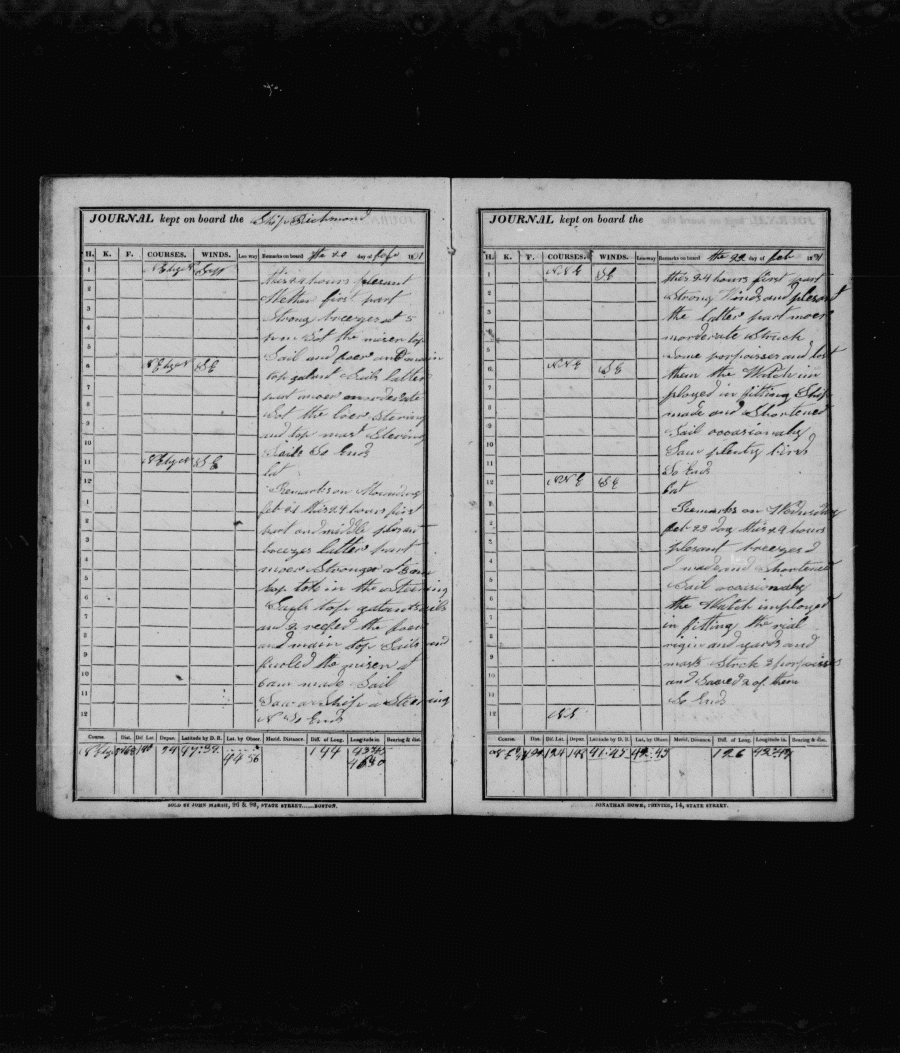 JOURNAL kept on board the Ship Richmond
H. K. F. COURSES. WINDS. Lee-way Remarks on board the 20 day of 18
this 24 hours plesant
Wether first part
Strong breezes at 5
pm Set the misen top
Sail and foer and main
top galant Sails latter
part moer morderate
Sot the loer Stering
and top mast Stering
Sails So Ends
lat
Remarks on Mounday
feb 21 this 24 hours first
part and middle plesant
breezes latter part
moer Stronger at 5 am
top tok in the Steering
Sails top galant Sails
and 2 reefed the foer
and main top Sails and
furled the misen at
6 am made Sail
Saw a Ship a Steering
N So Ends
Course. Dist. Dif. Lat. Depar. Latitude by D. R. Lat. by Obser. Merid. Distance. Diff. of Long. Longitude in. Bearing & dist.
SOLD BY JOHN MARSH, 96 & 98, STATE STREET.....BOSTON.
JOURNAL kept on board the
H. K. F. COURSES. WINDS. Lee-way Remarks on board the 22 day of feb 18
1 N.N.E SE
this 24 hours first part
Strong Winds and plesant
the latter part moer
morderate Struck
Some porpoisses and lost
6 N.N.E SE
them the Watch im
ployed in fitting Ship
made and Shortened
Sail occasionaly
Saw plenty birds
So Ends
12 N.N.E SE
lat
Remarks on Wednsday
feb 23 day this 24 hours
plesant breezes
made and Shortened
Sail occasionaly
the Watch imployed
in fitting the rial
rigin and yards and
mast Strok 3 porpoisses
and Saved 2 of them
So Ends
Course. Dist. Dif. Lat. Depar. Latitude by D. R. Lat. by Obser. Merid. Distance. Diff. of Long. Longitude in. Bearing & dist.
41:45 126
JONATHAN HOWE, PRINTER, 14, STATE STREET.